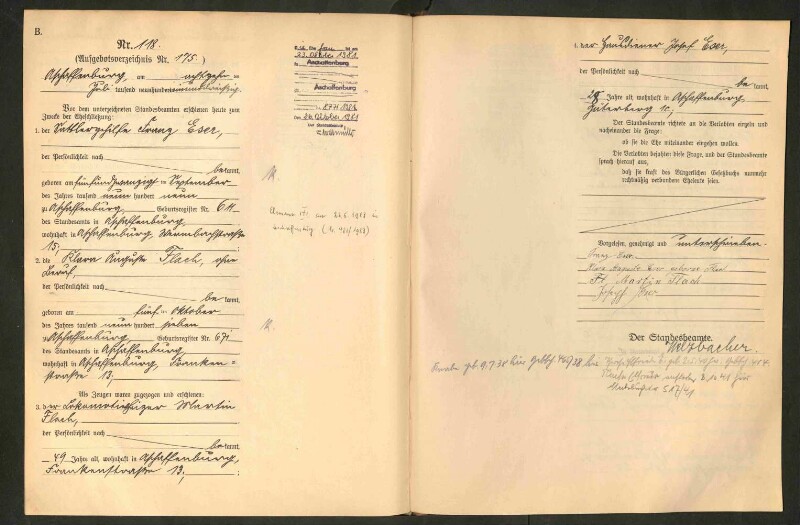 B.
Nr. 118.
(Aufgebotsverzeichnis Nr. 175.)
Aschaffenburg, am achtzehn ten
Juli tausend neunhundert
Vor dem unterzeichneten Standesbeamten erschienen heute zum
Zwecke der Eheschließung:
1. der Sattlergehilfe Franz Eser,
der Persönlichkeit nach
bekannt,
geboren am fünfundzwanzigsten September
des Jahres tausend neun hundert neun
zu Aschaffenburg, Geburtsregister Nr. 611
des Standesamts in Aschaffenburg,
wohnhaft in Aschaffenburg, Wermbachstraße
15;
2. die Klara Auguste Flach, ohne
Beruf,
der Persönlichkeit nach
bekannt,
geboren am fünften Oktober
des Jahres tausend neun hundert sieben
zu Aschaffenburg, Geburtsregister Nr. 671
des Standesamts in Aschaffenburg,
wohnhaft in Aschaffenburg, Franken=
straße 13;
Als Zeugen waren zugezogen und erschienen:
3. der Lokomotivheizer Martin
Flach,
der Persönlichkeit nach
bekannt,
49 Jahre alt, wohnhaft in Aschaffenburg,
Frankenstraße 13;
23. Oktober 1981
Aschaffenburg
Aschaffenburg
den 26. Oktober 1981
4. der Hausdiener Josef Eser,
der Persönlichkeit nach
bekannt,
28 Jahre alt, wohnhaft in Aschaffenburg,
Der Standesbeamte richtete an die Verlobten einzeln und
nacheinander die Frage:
ob sie die Ehe miteinander eingehen wollen.
Die Verlobten bejahten diese Frage, und der Standesbeamte
sprach hierauf aus,
daß sie kraft des Bürgerlichen Gesetzbuchs nunmehr
rechtmäßig verbundene Eheleute seien.
Vorgelesen, genehmigt und unterschrieben.
Franz Eser.
Klara Auguste Eser geborene Flach
Martin Flach
Joseph Eser
Der Standesbeamte.
Welzbacher.